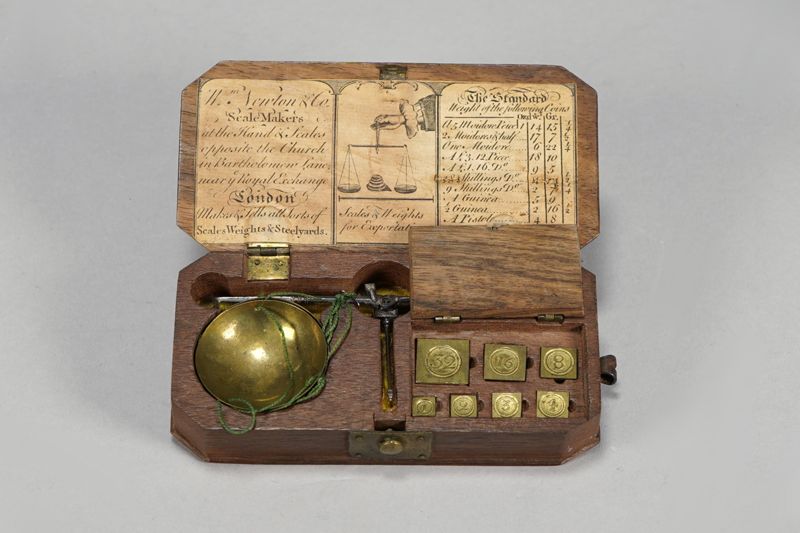 Wm. Newton & Co.
Scale Makers
at the Hand & Scales
opposite the Church
in Bartholomew Lane
near ye Royal Exchange
London
Makes & Sells all Sorts of
Scales Weights & Steelyards.
Scales & Weights
for Exportation
The Standard
Weight of the following Coins
Gr.
14 15
2 Moidores & half 17 7
One Moidore 6 22
A £3.12 Piece 18 10
A £1.16 Do 9 5
Shillings Do
9 Shillings Do
A Guinea 5 9
½ Guinea 2 16
A Pistole 4 8
32
16
8
1
2
3
4